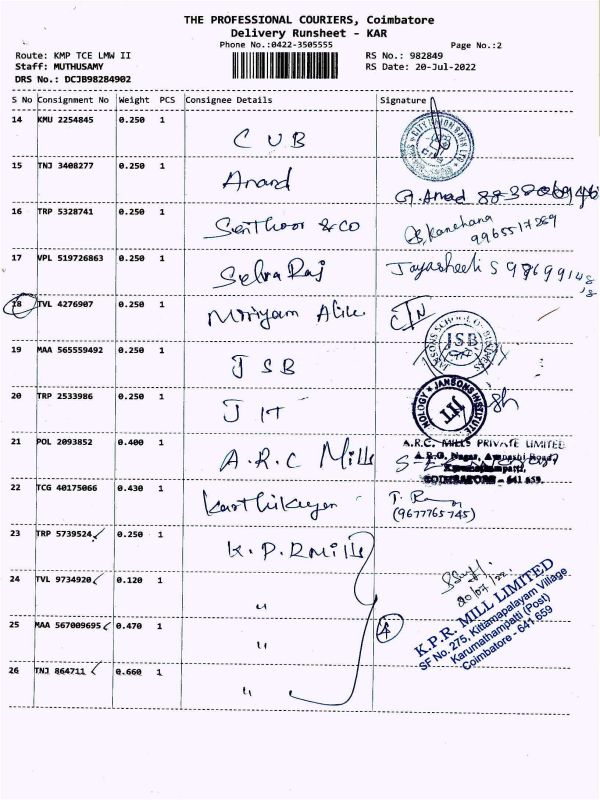 THE PROFESSIONAL COURIERS, Coimbatore
Delivery Runsheet - KAR
Phone No.:0422-3505555 Page No.:2
Route: KMP TCE LMW II RS No.: 982849
Staff: MUTHUSAMY RS Date: 20-Jul-2022
DRS No.: DCJB98284902
S No Consignment No Weight PCS Consignee Details Signature
14 KMU 2254845 0.250 1 CUB
CITY UNION BANK LTD
15 TNJ 3408277 0.250 1 Anand
16 TRP 5328741 0.250 1 Senthoor & CO Kanchana
9965517289
17 VPL 519726863 0.250 1 Selva Raj
18 TVL 4276907 0.250 1
19 MAA 565559492 0.250 1 JSB
JANSONS SCHOOL OF BUSINESS
JSB
20 TRP 2533986 0.250 1 JIT
JANSONS INSTITUTE
JIT
21 POL 2093852 0.400 1 A.R.C Mills
A.R.C. MILLS PRIVATE LIMITED
COIMBATORE - 641 659.
22 TCG 40175066 0.430 1 Karthikeyen
(9677765745)
23 TRP 5739524 0.250 1 K.P.R mills
24 TVL 9734920 0.120 1 "
20/07/22
25 MAA 567009695 0.470 1 " 4
K.P.R. MILL LIMITED
SF No. 275, Kittampalayam Village
Karumathampatti (Post)
Coimbatore - 641 659
26 TNJ 864711 0.660 1 "